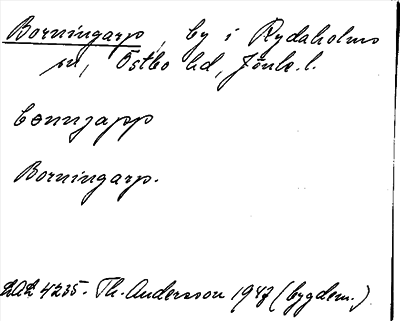 Borningarp, by i Rydaholms
sn, Östbo hd, Jönk. l.
bonnjapp
Borningarp.
LAL 4235. Th. Andersson 1947 (bygdem.)